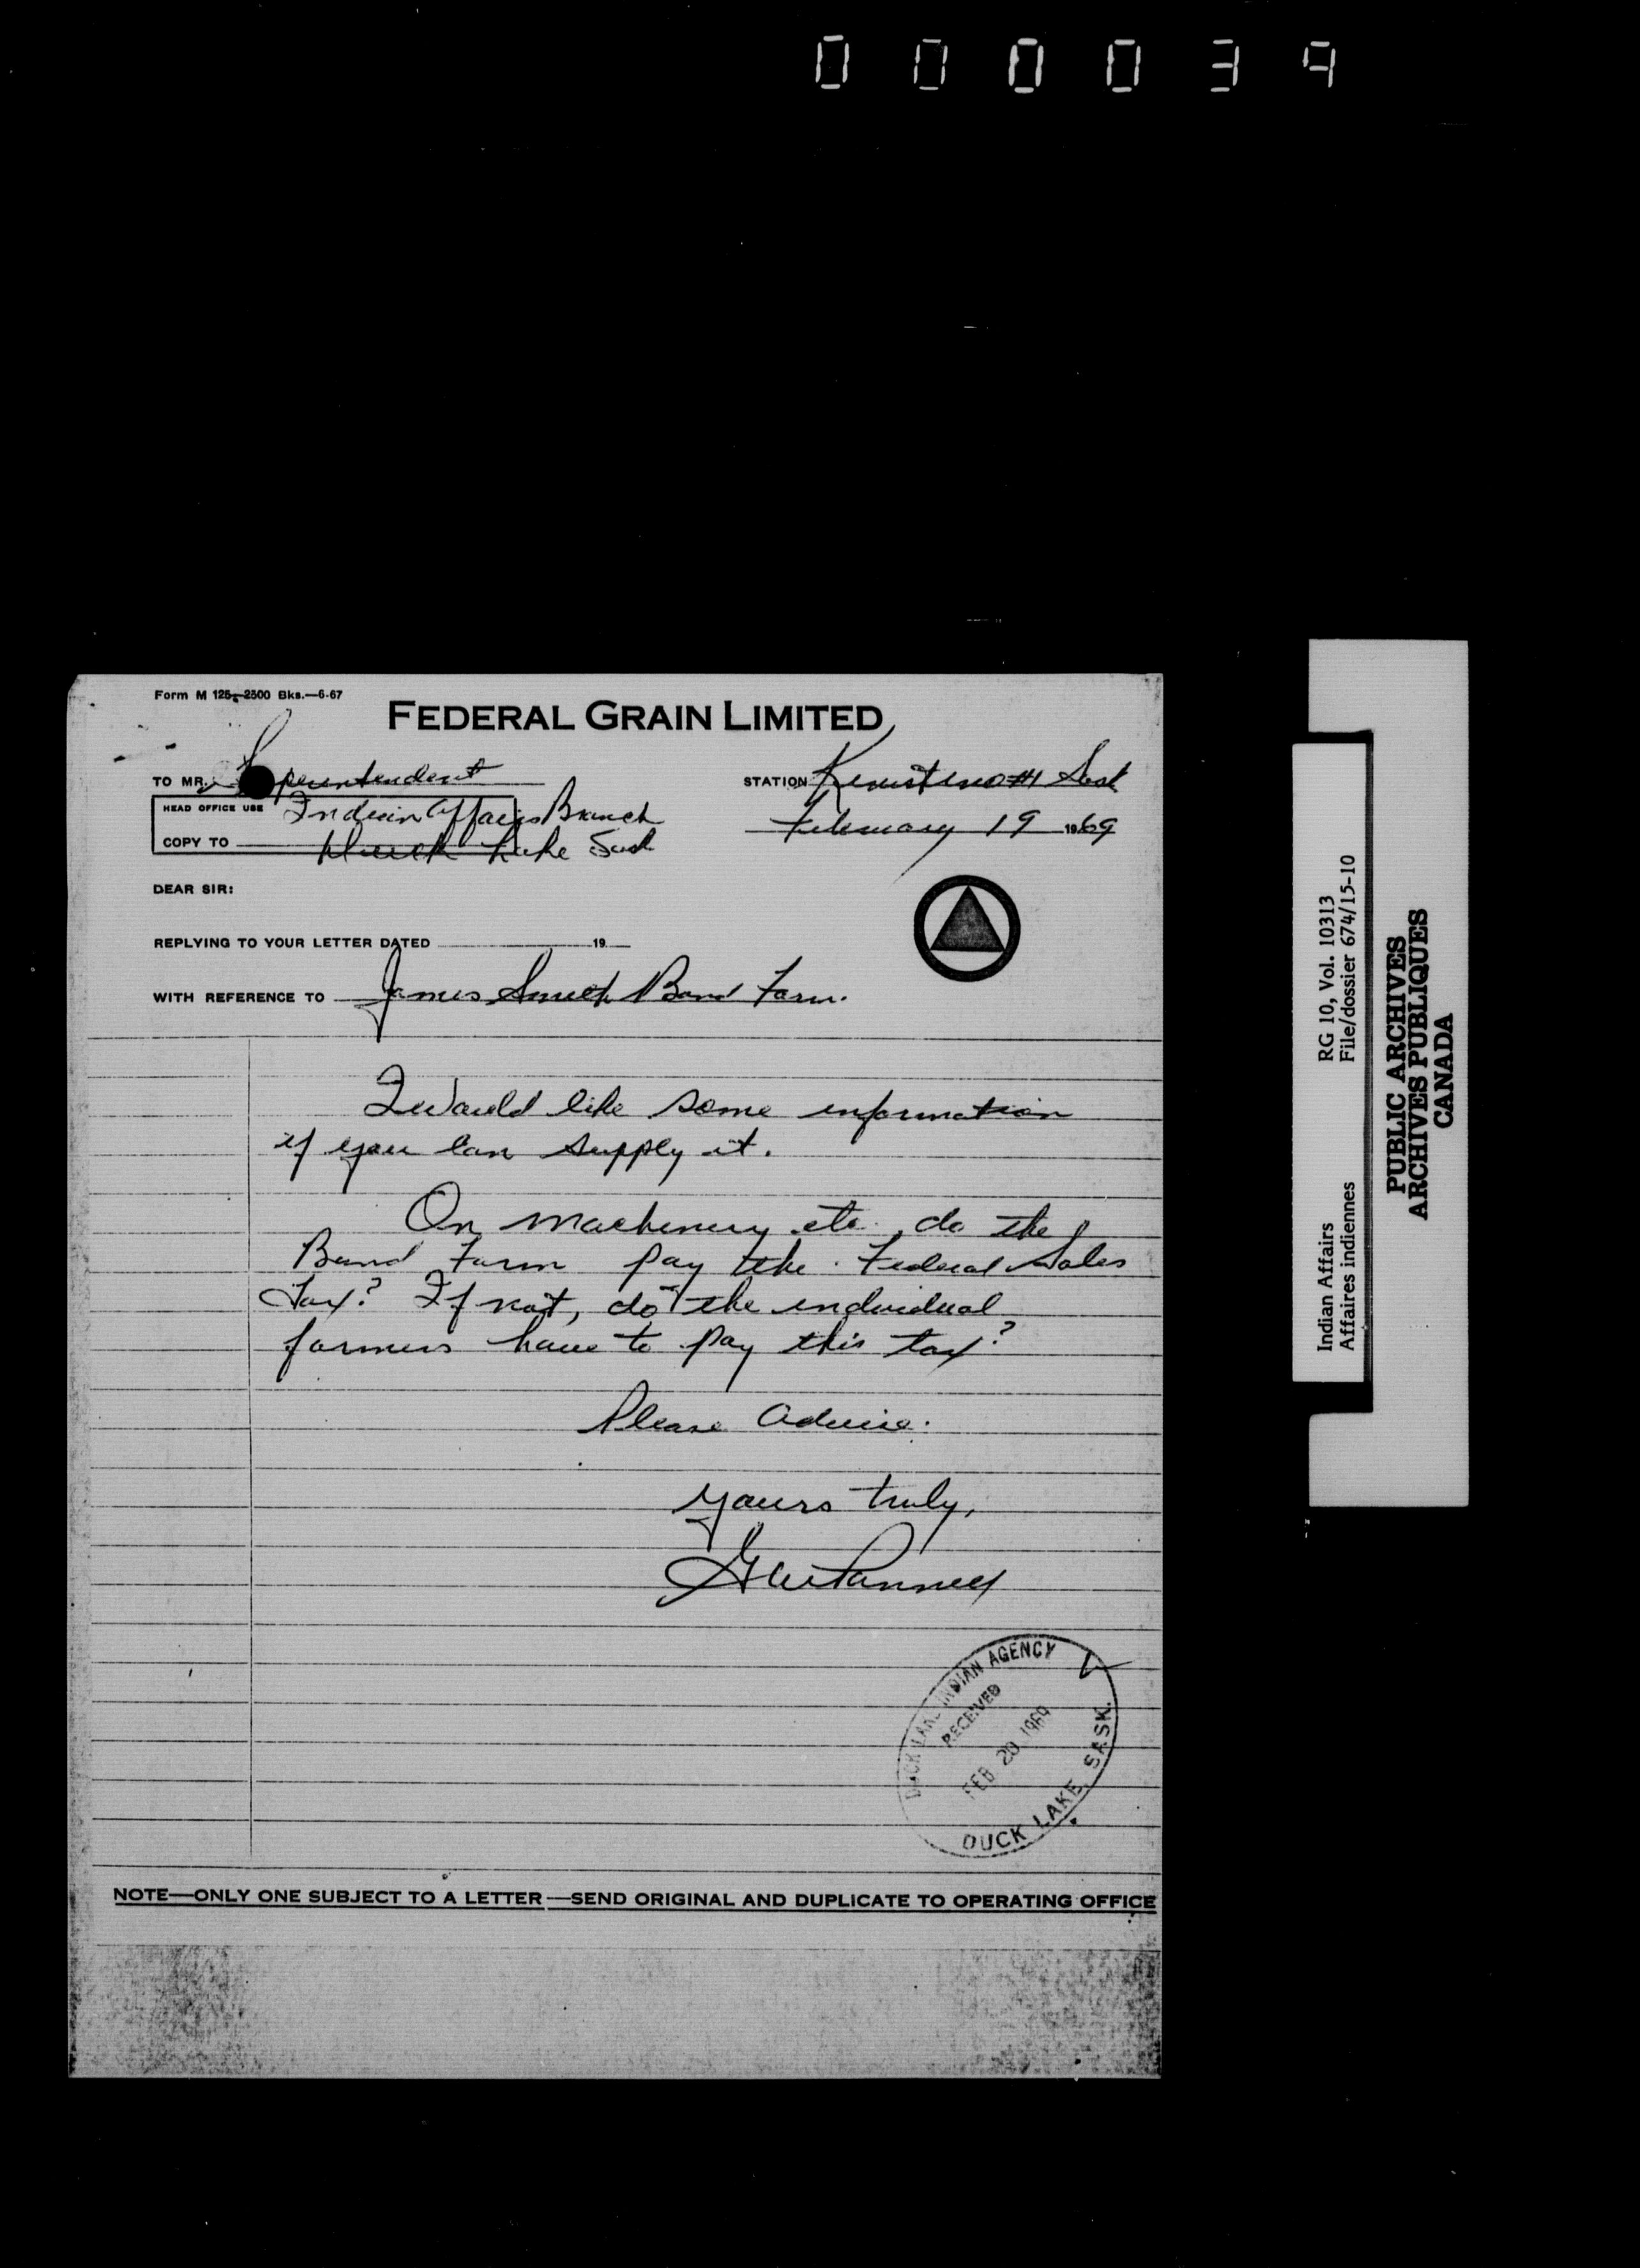 000039
Form M 125—2500 Bks.—6-67
FEDERAL GRAIN LIMITED
TO MR. Superintendent
STATION Kinistino #1 Sask
HEAD OFFICE USE Indian Affairs Branch
February 19 1969
COPY TO Duck Lake Sask
DEAR SIR:
REPLYING TO YOUR LETTER DATED 19
WITH REFERENCE TO James Smith Band Farm.
I would like some information
if you can supply it.
On machinery etc. do the
Band Farm pay the Federal Sales
Tax? If not, do the individual
farmers have to pay this tax?
Please Advise.
Yours truly,
DUCK LAKE INDIAN AGENCY
RECEIVED
FEB 20 1969
DUCK LAKE, SASK.
NOTE—ONLY ONE SUBJECT TO A LETTER—SEND ORIGINAL AND DUPLICATE TO OPERATING OFFICE
Indian Affairs RG 10, Vol. 10313
Affaires indiennes File/dossier 674/15-10
PUBLIC ARCHIVES
ARCHIVES PUBLIQUES
CANADA